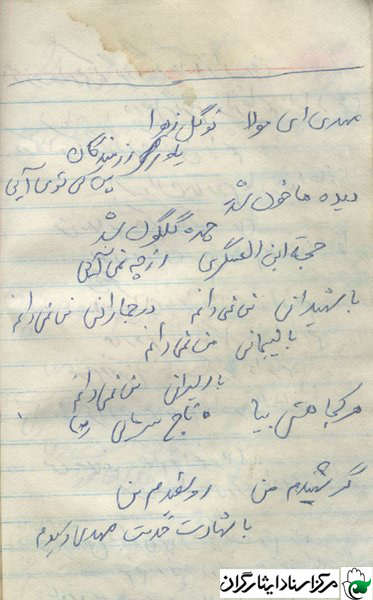 مهدی ای مولا توگل زهرا
یاور رزمندگان
پس کی تو می آیی
دیده ما خون شد
چهره گلگون شد
حجة ابن العسکری از چه نمی آئی
با شهیدانی من نمی دانم در جمارانی من نمی دانم
من نمی دانم
من نمی دانم
هر کجا هستی بیا تاج سر مائی
گر شهیدم من رو سفیدم من
با شهادت خدمت مهدی رسیدم
مرکز اسناد ایثارگران